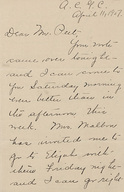 A. C. & C.
April 11, 1907.
Dear Mr. Peet—
Your note
came over to-night—
and I can come to
you Saturday morning
even better than in
the afternoon this
week. Mrs. Mallon
has invited me to
go to Elijah with
them Friday night—
and I can go right